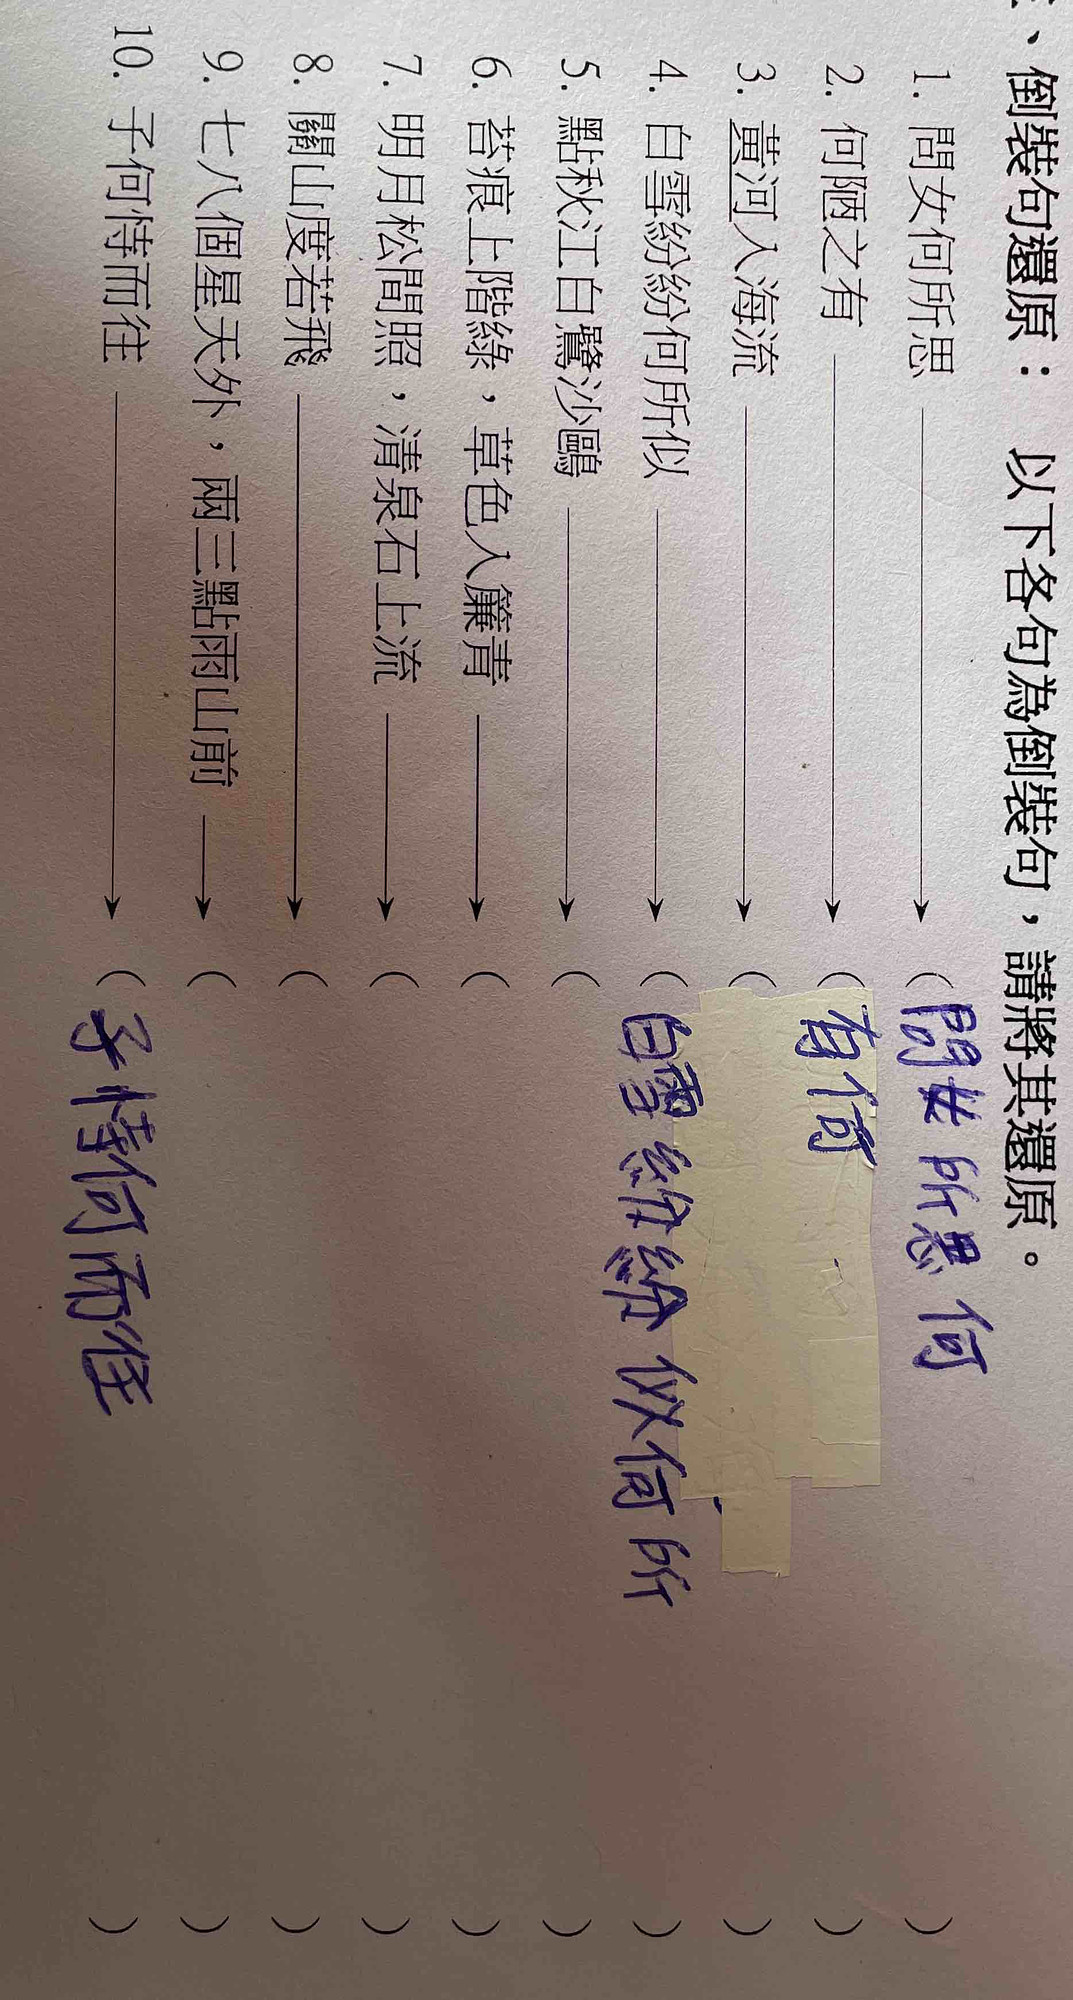 、倒裝句還原：以下各句為倒裝句，請將其還原。
1. 問女何所思 → （問女所思何 ）
2. 何陋之有 → （有何 ）
3. 黃河入海流 → （ ）
4. 白雪紛紛何所似 → （白雪紛紛似何所 ）
5. 點秋江白鷺沙鷗 → （ ）
6. 苔痕上階綠，草色入簾青 → （ ）
7. 明月松間照，清泉石上流 → （ ）
8. 關山度若飛 → （ ）
9. 七八個星天外，兩三點雨山前 → （ ）
10. 子何恃而往 → （子恃何而往 ）